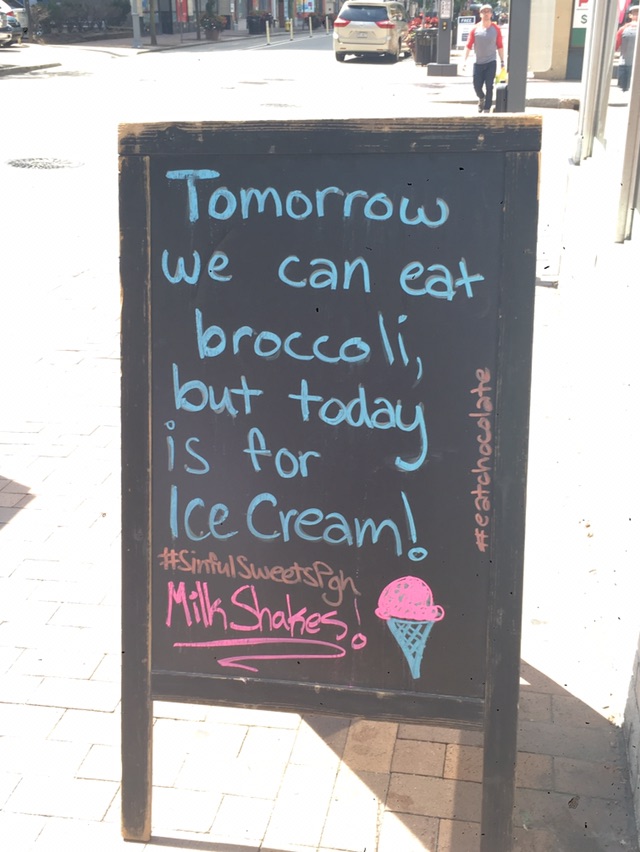 Tomorrow
we can eat
broccoli,
but today
is for
Ice Cream!
#SinfulSweetsPgh
MilkShakes!
#eatchocolate